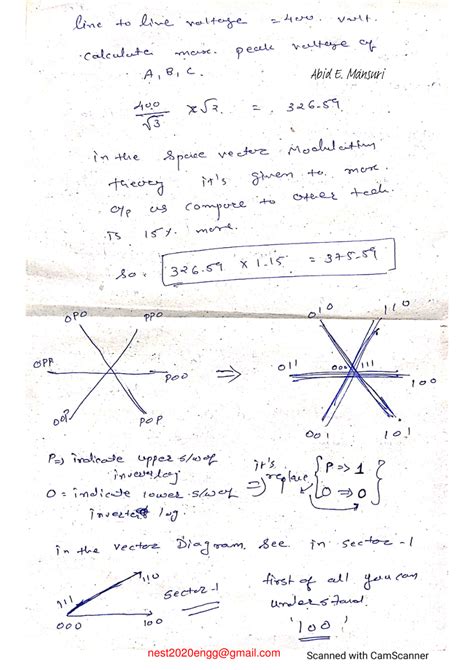 line to line voltage = 400. volt.
calculate max. peak voltage of
A, B, C.
Abid E. Mansuri
400/√3 x √2 = 326.59
in the space vector Modulation
theory it's given to max.
o/p as compare to other tech.
is 15% more.
so. 326.59 x 1.15 = 375.59
OPO PPO
OPP POO
OOP POP
⇒
010 110
011 000 111 100
001 101
P => indicate upper s/w of
inverter leg
O = indicate lower s/w of
inverter leg.
=> it's replace { P => 1
O => 0 }
in the vector Diagram. See in sector-1
111 110
000 100
sector-1
first of all you can
understand.
'100'
nest2020engg@gmail.com
Scanned with CamScanner